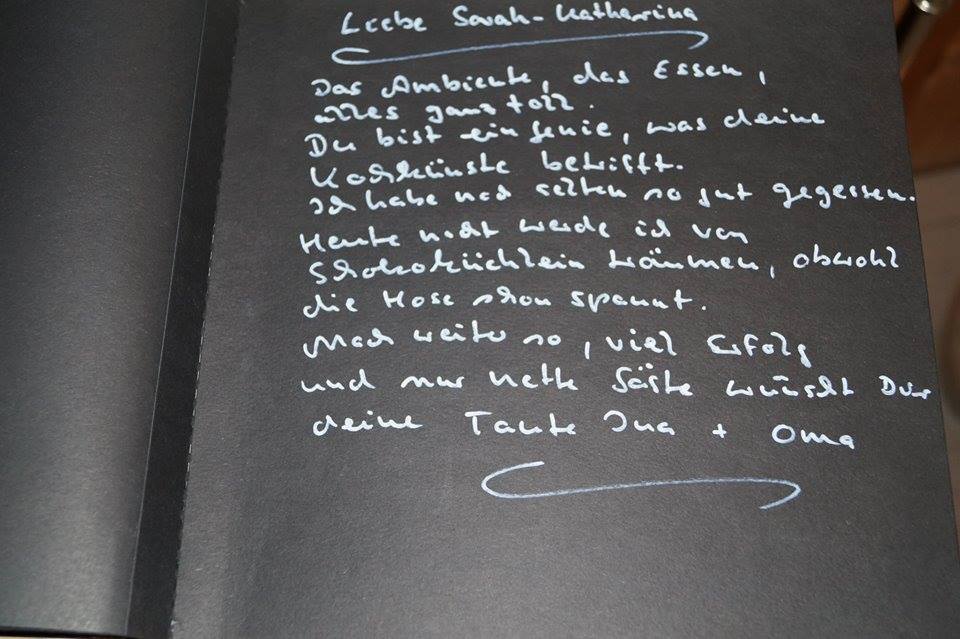 Liebe Sarah-Katharina
Das Ambiente, das Essen,
alles ganz toll.
Du bist ein Genie, was deine
Kochkünste betrifft.
Ich habe noch selten so gut gegessen.
Heute nacht werde ich von
Schokoküchlein träumen, obwohl
die Hose schon spannt.
Mach weiter so, viel Erfolg
und nur nette Gäste wünscht Dir
deine Tante Ina + Oma